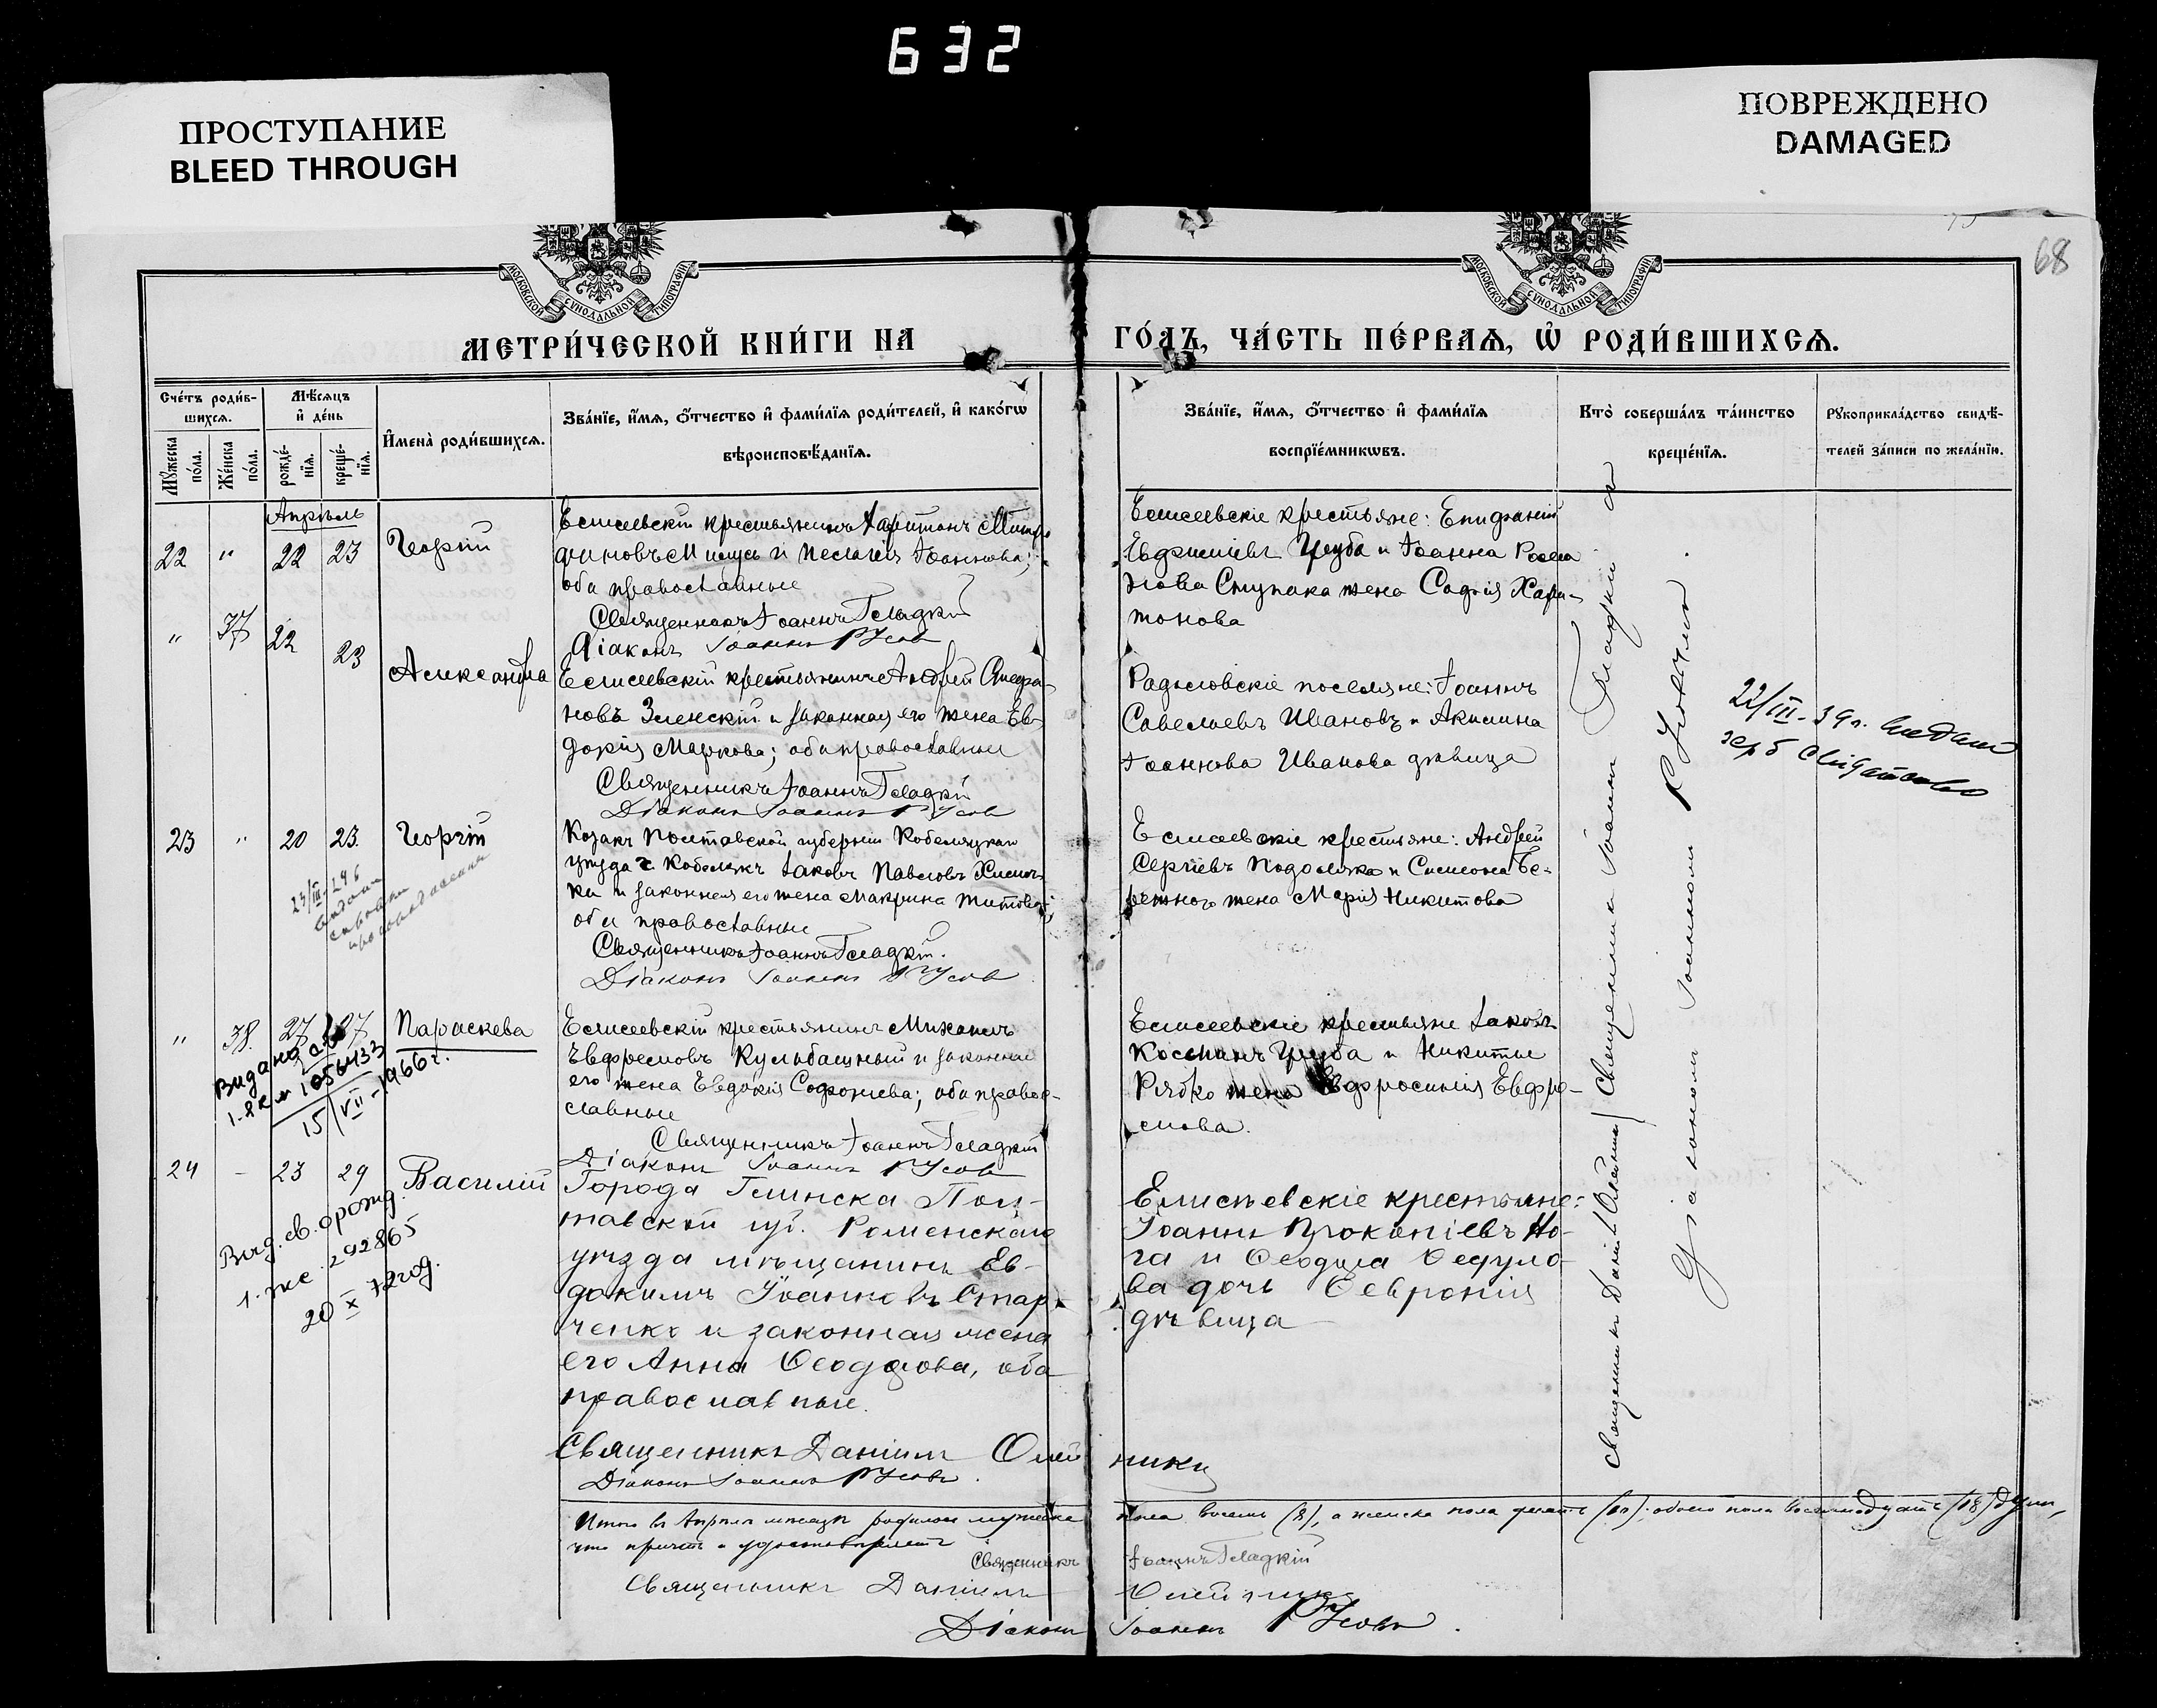 632
ПРОСТУПАНИЕ
BLEED THROUGH
ПОВРЕЖДЕНО
DAMAGED
68
МОСКОВСКОЙ СѴНОДАЛЬНОЙ ТИПОГРАФІИ
МОСКОВСКОЙ СѴНОДАЛЬНОЙ ТИПОГРАФІИ
МЕТРИ́ЧЕСКОЙ КНИ́ГИ НА ГО́ДЪ, ЧА́СТЬ ПЕ́РВАѦ, Ѡ҆ РОДИ́ВШИХСѦ.
Сче́тъ роди́в-
шихсѧ.
Мꙋ́жеска по́ла.
Же́нска по́ла.
Мѣ́сѧцъ
и҆ де́нь
рожде́-
нїѧ.
креще́-
нїѧ.
И҆мена̀ роди́вшихсѧ.
Зва́нїе, и҆́мѧ, ѻ҆́тчество и҆ фами́лїѧ роди́телей, и҆ како́гѡ
вѣроисповѣ́данїѧ.
Зва́нїе, и҆́мѧ, ѻ҆́тчество и҆ фами́лїѧ
воспрїе́мникѡвъ.
Кто̀ соверша́лъ та́инство
креще́нїѧ.
Рꙋкоприкла́дство свидѣ́-
телей за́писи по жела́нїю.
Апрѣль
22 " 22 23 Георгій
Елисеевскій крестьянинъ Харитонъ Митро
фановъ и Пелагія Іоаннова;
оба православные
Священникъ Іоаннъ Гладкій
Діаконъ Іоаннъ Русов
Елисеевскіе крестьяне: Епифаній
Евфиміевъ Цруба и Іоанна Рома
нова Ступака жена Софія Хари-
тонова
" 37 22 23 Александра
Елисеевскій крестьянинъ Андрей Стефа-
новъ Зленскій и законная его жена Ев-
докія Маркова; оба православные
Священникъ Іоаннъ Гладкій
Діаконъ Іоаннъ Русов
Радоловскіе поселяне: Іоаннъ
Савельевъ Ивановъ и Акилина
Іоаннова Иванова дѣвица
22/III-39 г. видано
свідотство
23 " 20 23. Георгій
Козакъ Полтавской губерніи Кобеляцкаго
уѣзда г. Кобелякъ Іаковъ Павловъ
ка и законная его жена Макрина Титова;
оба православные
Священникъ Іоаннъ Гладкій.
Діаконъ Іоаннъ Русов
Елисеевскіе крестьяне: Андрей
Сергіевъ Подоляка и Симеона Бе-
режного жена Марія Никитова
" 38. 27 27 Параскева
Елисеевскій крестьянинъ Михаилъ
Евфремовъ Кульбашный и законная
его жена Евдокія Софоніева; оба право-
славные
Священникъ Іоаннъ Гладкій
Діаконъ Іоаннъ Русов
Елисеевскіе крестьяне Іаковъ
Цруба и Никиты
Рябко жена Евфросинія Евфре-
мова.
Видано св.
1056433
15/VII-1966 г.
24 - 23 29 Василій
Города Глинска Пол-
тавской губ. Роменскаго
уѣзда мѣщанинъ Ев-
докимъ Іоанновъ Стар-
ченко и законная жена
его Анна Ѳеодорова, оба
православные.
Священникъ Даніилъ Олейникъ
Діаконъ Іоаннъ Русовъ.
Елисѣевскіе крестьяне:
Іоаннъ Прокопіевъ Но-
га и Ѳеодула
ва дочь Февронія
дѣвица
Выд. св. о рожд.
292865
20 X 72 год.
Священникъ Даніилъ Олейникъ / Священникъ Іоаннъ Гладкій съ
Діакономъ Іоанномъ Русовымъ.
Итого въ Апрѣлѣ мѣсяцѣ родилось мужеска пола восемь (8), а женска пола десять (10); обоего пола восемнадцать (18) душъ,
что причтъ и удостовѣряетъ
Священникъ Іоаннъ Гладкій
Священникъ Даніилъ Олейникъ
Діаконъ Іоаннъ Русовъ.